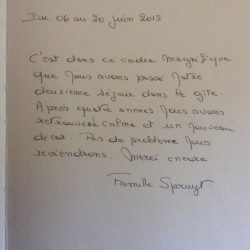 Du 06 au 20 juin 2015
C'est dans ce cadre magnifique
que nous avons passé notre
deuxième séjour dans le gîte.
Après quatre années nous avons
retrouvé calme et un nouveau
décor. Pas de problème nous
reviendrons. Merci encore
Famille Spruyt